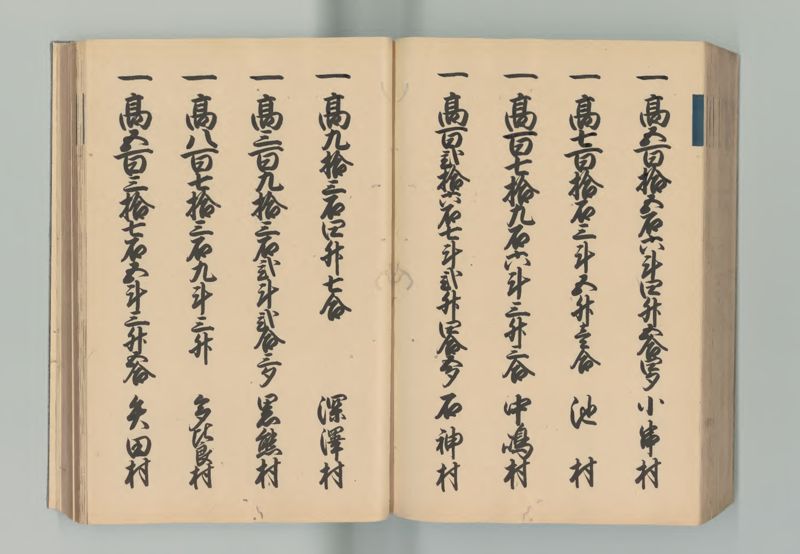 一 高五百拾五石六斗四升五合四夕 小串村
一 高七百拾石三斗五升壱合 池村
一 高百七拾九石六斗三升三合 中嶋村
一 高百弐拾六石七斗弐升四合五夕 石神村
一 高九拾三石四升七合 深澤村
一 高三百九拾三石弐斗弐合三夕 黒熊村
一 高八百七拾三石九斗三升 多比良村
一 高五百三拾七石五斗三升五合 矢田村